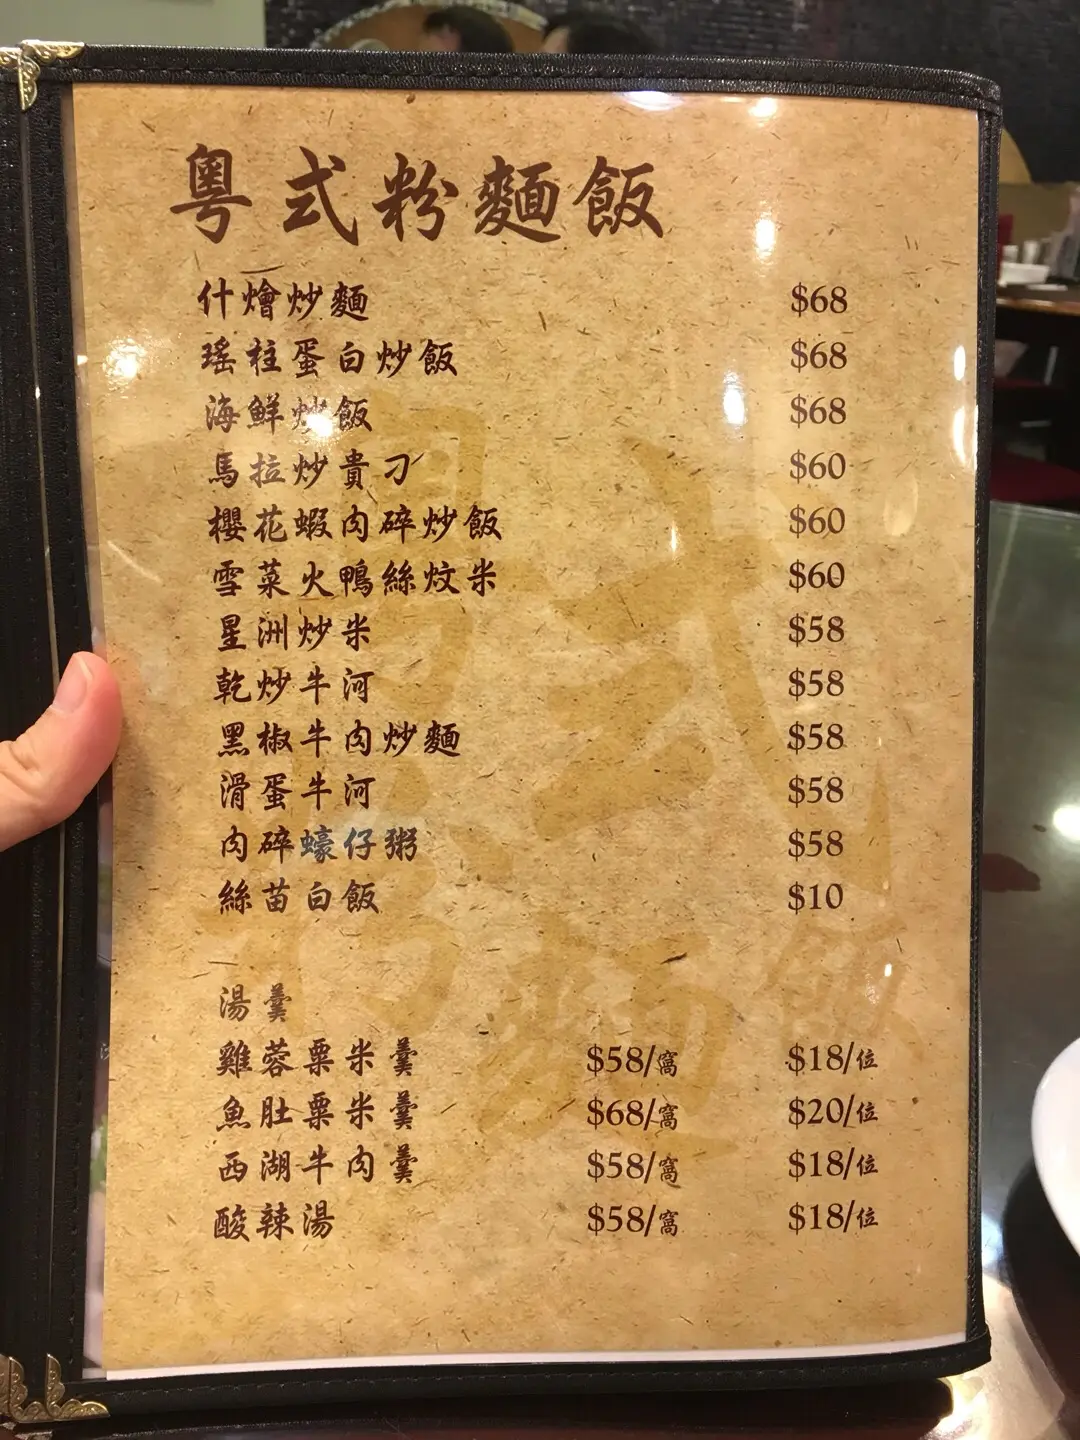 粵式粉麵飯
什燴炒麵 $68
瑤柱蛋白炒飯 $68
海鮮炒飯 $68
馬拉炒貴刁 $60
櫻花蝦肉碎炒飯 $60
雪菜火鴨絲炆米 $60
星洲炒米 $58
乾炒牛河 $58
黑椒牛肉炒麵 $58
滑蛋牛河 $58
肉碎蠔仔粥 $58
絲苗白飯 $10
湯羹
雞蓉粟米羹 $58/窩 $18/位
魚肚粟米羹 $68/窩 $20/位
西湖牛肉羹 $58/窩 $18/位
酸辣湯 $58/窩 $18/位